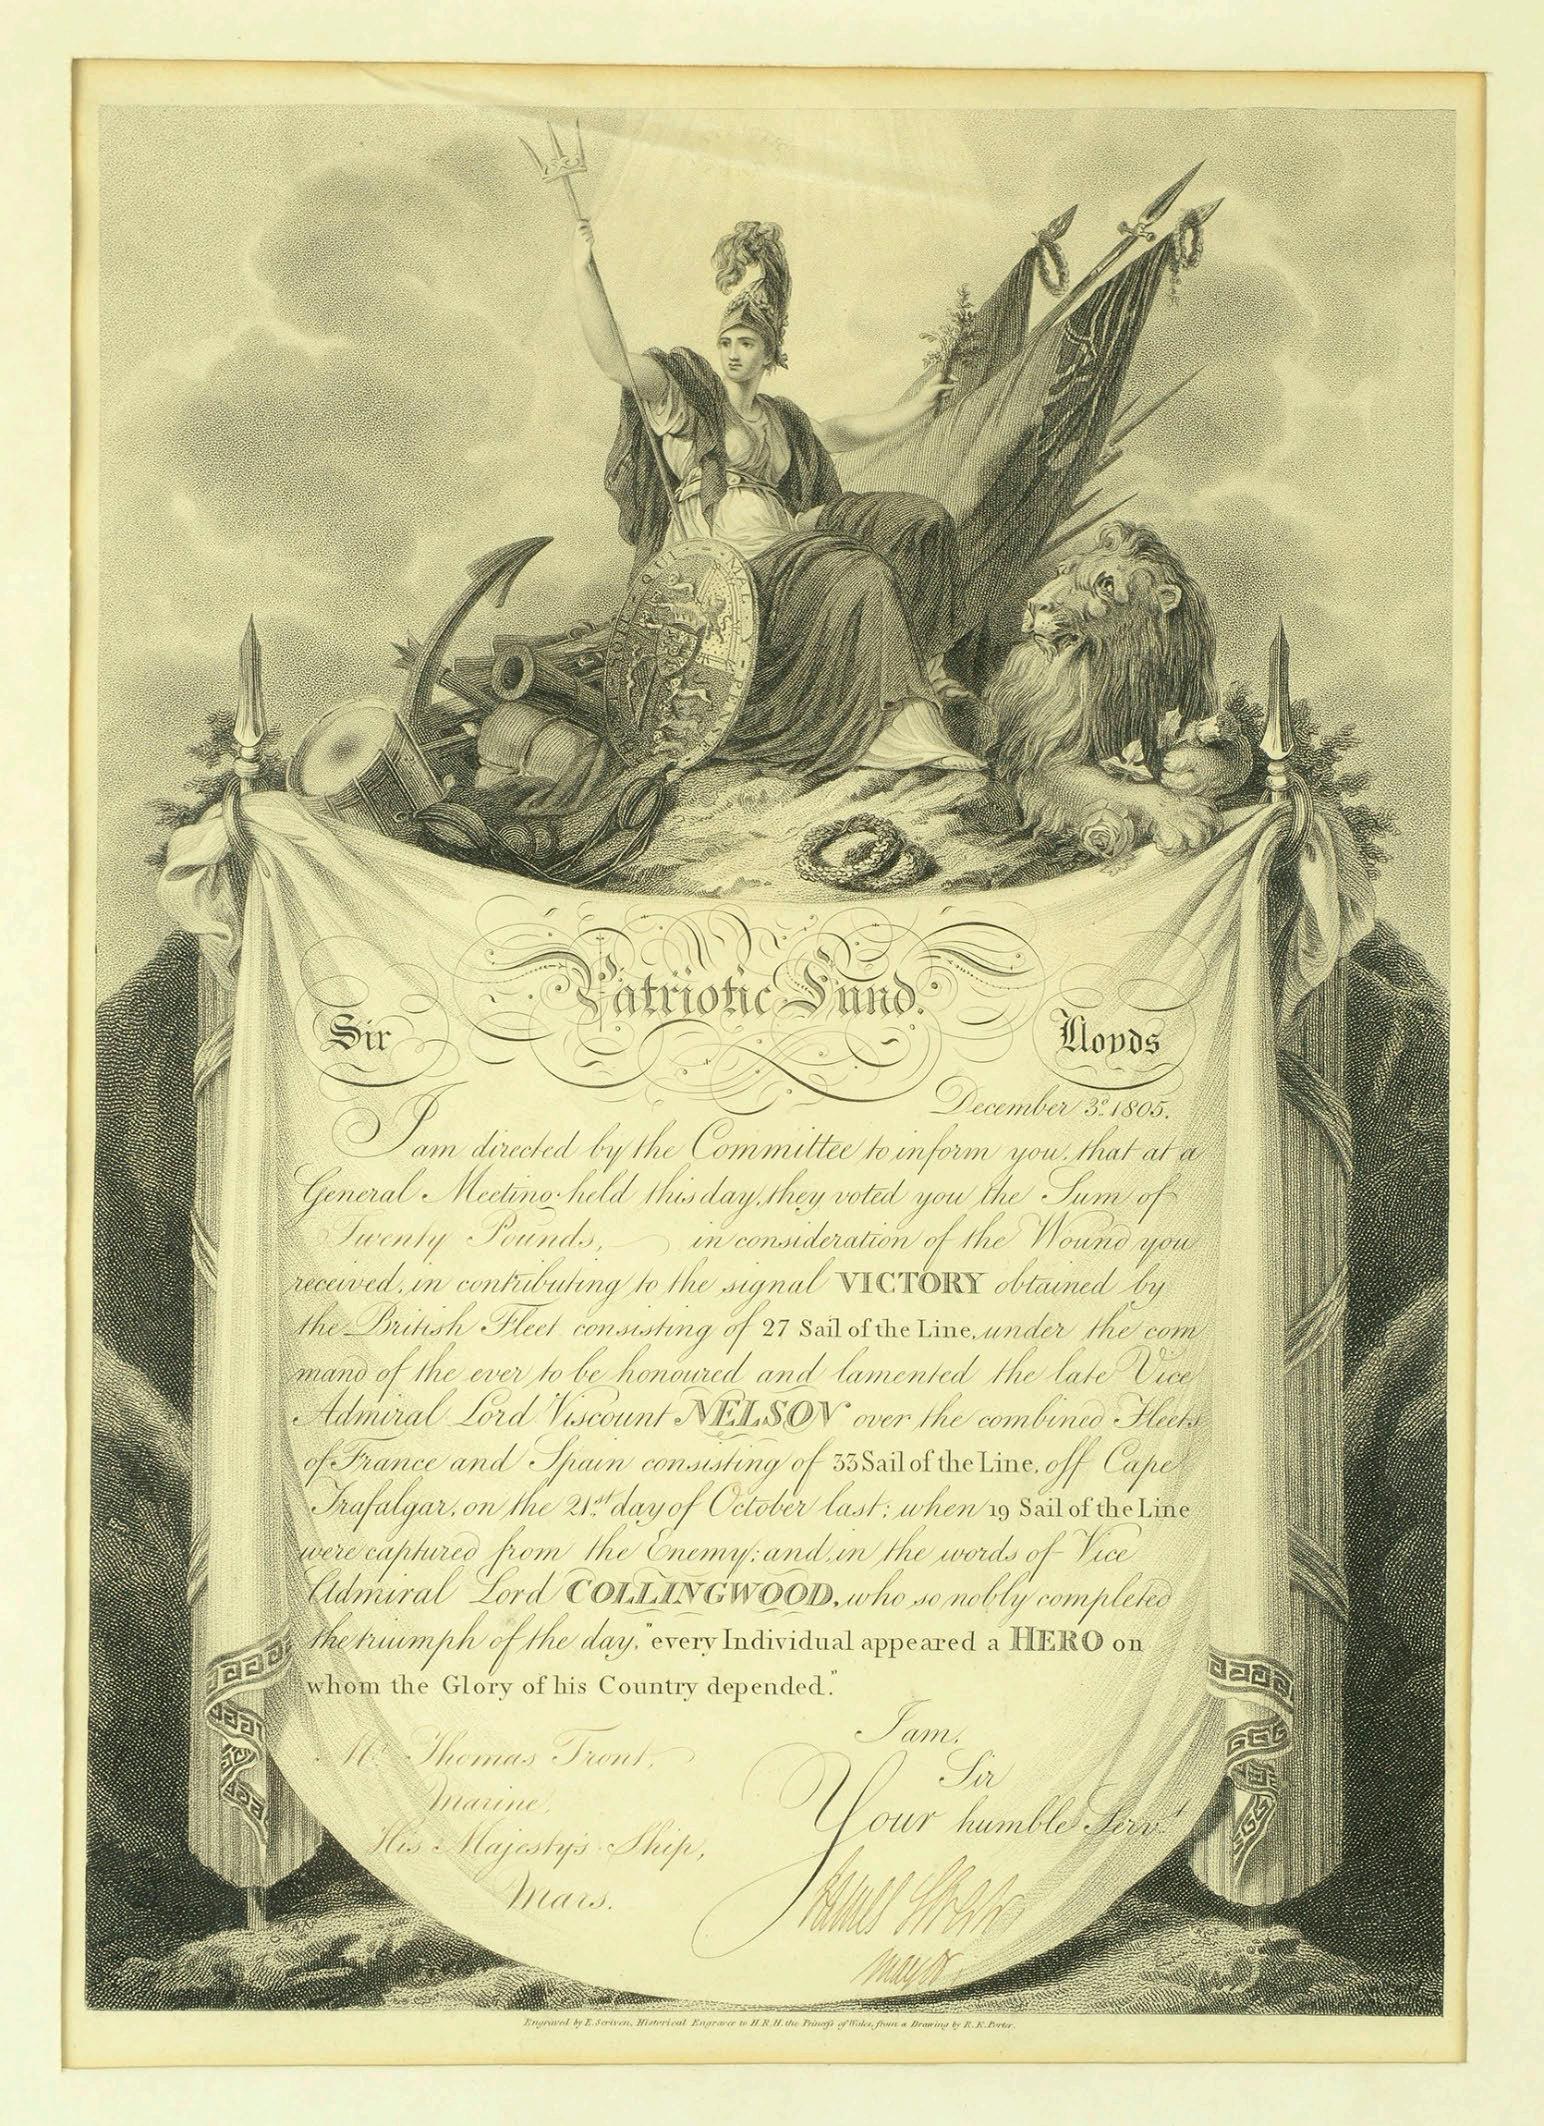 HONI · SOIT · QUI · MAL · Y · PENSE
Patriotic Fund.
Sir
Lloyds
December 3.d 1805.
I am directed by the Committee to inform you, that at a
General Meeting held this day, they voted you the Sum of
Twenty Pounds, in consideration of the Wound you
received, in contributing to the signal VICTORY obtained by
the British Fleet consisting of 27 Sail of the Line, under the com
mand of the ever to be honoured and lamented the late Vice
Admiral Lord Viscount NELSON over the combined Fleets
of France and Spain consisting of 33 Sail of the Line, off Cape
Trafalgar, on the 21.st day of October last; when 19 Sail of the Line
were captured from the Enemy; and, in the words of Vice
Admiral Lord COLLINGWOOD, who so nobly completed
the triumph of the day, "every Individual appeared a HERO on
whom the Glory of his Country depended."
I am,
Sir
Your humble Serv.t
James
Mayor
Mr. Thomas Tront,
Marine,
His Majesty's Ship,
Mars.
Engraved by E. Scriven, Historical Engraver to H.R.H. the Princess of Wales, from a Drawing by R. K. Porter.